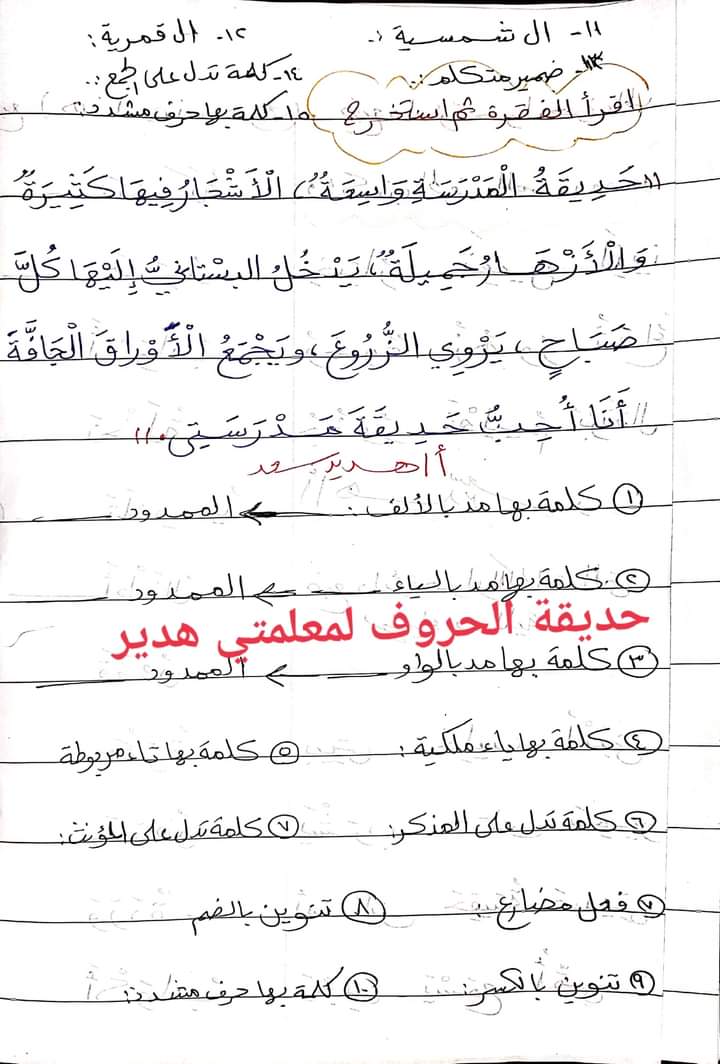 ١١- ال شمسية : ١٢- ال قمرية :
١٣- ضمير متكلم : ١٤- كلمة تدل على الجمع :
اقرأ الفقرة ثم استخرج ١٥- كلمة بها حرف مشدد :
"حَدِيقَةُ الْمَدْرَسَةِ وَاسِعَةٌ، الْأَشْجَارُ فِيهَا كَثِيرَةٌ
وَالْأَزْهَارُ جَمِيلَةٌ، يَدْخُلُ البستانيُّ إِلَيْهَا كُلَّ
صَبَاحٍ، يَرْوِي الزُّرُوعَ، ويَجْمَعُ الْأَوْرَاقَ الْجَافَّةَ
أَنَا أُحِبُّ حَدِيقَةَ مَدْرَسَتِي."
أ/هدير سعد
١ كلمة بها مد بالألف : ← الممدود
٢ كلمة بها مد بالياء ← الممدود
حديقة الحروف لمعلمتي هدير
٣ كلمة بها مد بالواو ← الممدود
٤ كلمة بها ياء ملكية : ٥ كلمة بها تاء مربوطة
٦ كلمة تدل على المذكر: ٧ كلمة تدل على المؤنث:
٧ فعل مضارع : ٨ تنوين بالضم
٩ تنوين بالكسر: ١٠ كلمة بها حرف مشدد: